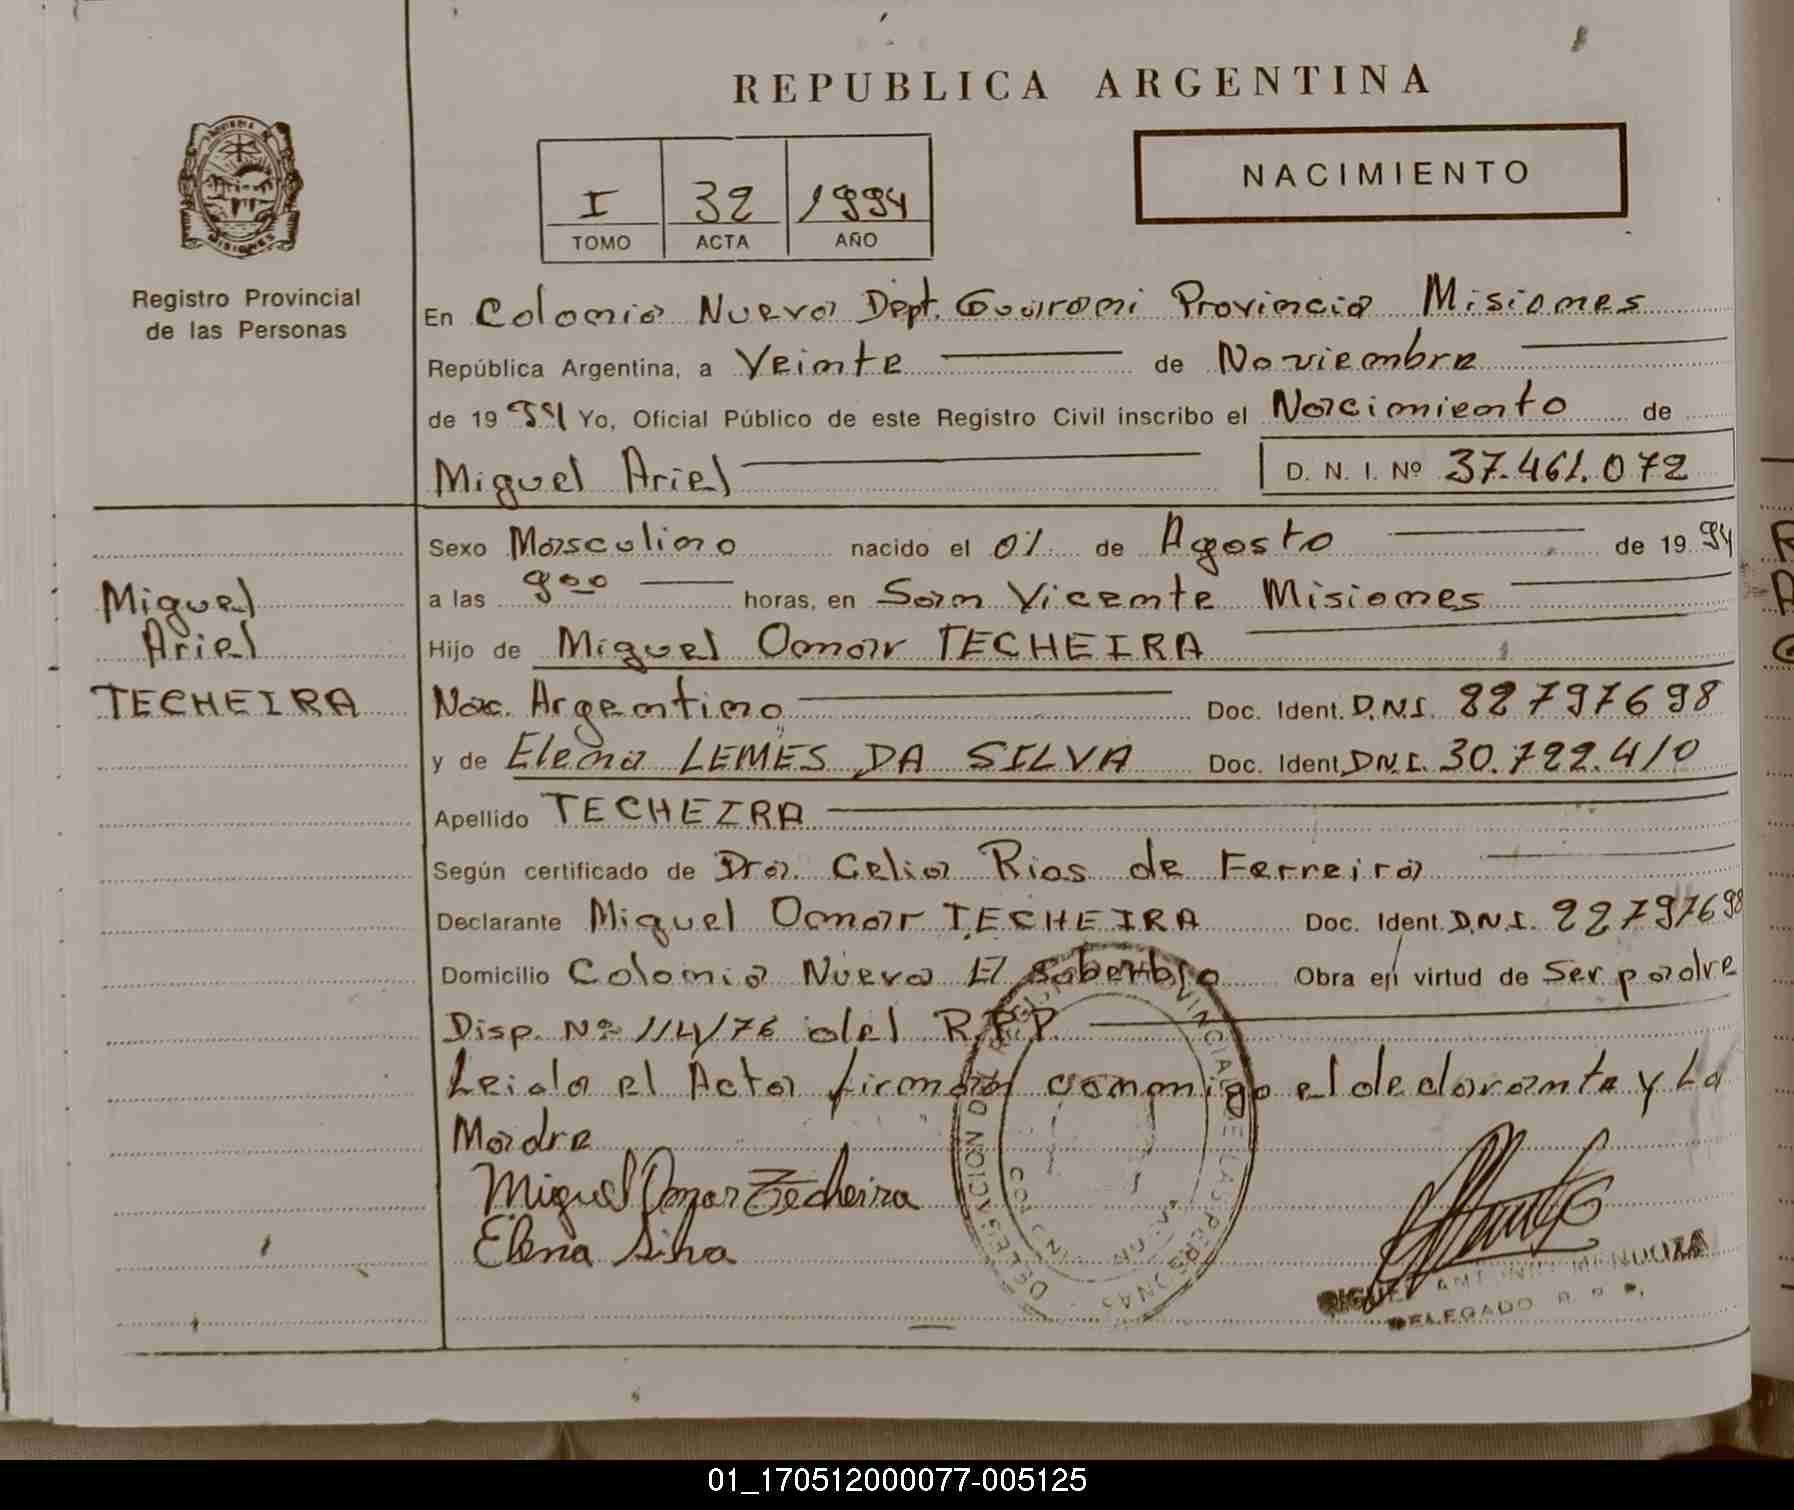 REPUBLICA ARGENTINA
I 32 1994
TOMO ACTA AÑO
NACIMIENTO
MISIONES
Registro Provincial
de las Personas
En Colonia Nueva Dept. Guarani Provincia Misiones
República Argentina, a Veinte de Noviembre
de 1994 Yo, Oficial Público de este Registro Civil inscribo el Nacimiento de
Miguel Ariel D. N. I. Nº 37.461.072
Sexo Masculino nacido el 01 de Agosto de 1994
a las 9 00 horas, en San Vicente Misiones
Hijo de Miguel Omar TECHEIRA
Nac. Argentino Doc. Ident. D.N.I. 22797698
y de Elena LEMES DA SILVA Doc. Ident. D.N.I. 30.722.410
Apellido TECHEIRA
Según certificado de Dra. Celia Rios de Ferreira
Declarante Miguel Omar TECHEIRA Doc. Ident. D.N.I. 22797698
Domicilio Colonia Nueva El Soberbio Obra en virtud de Ser padre
Disp. Nº 114/76 del R.P.P.
Leida el Acta firman conmigo el declarante y La
Madre
Miguel Omar Techeira
Elena Silva
Miguel
Ariel
TECHEIRA
DELEGACION PROVINCIAL DE LAS PERSONAS
MIGUEL ANTONIO MENDOZA
DELEGADO R. P. P.
01_170512000077-005125